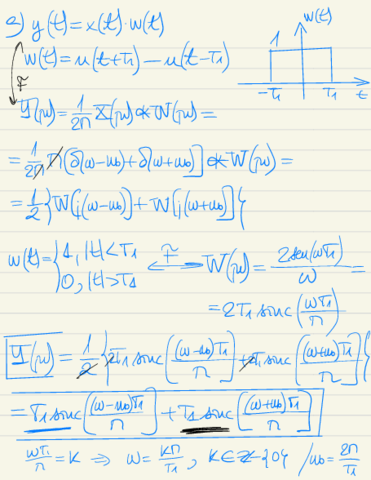 a) y(t)=x(t)·w(t)
w(t)
w(t)=u(t+T₁)-u(t-T₁)
1
-T₁ T₁ t
F
Y(jω)=1/2π X(jω)*W(jω)=
=1/2π π[δ(ω-ω₀)+δ(ω+ω₀)]*W(jω)=
=1/2 {W[j(ω-ω₀)]+W[j(ω+ω₀)]}
w(t)={1, |t|<T₁ 0, |t|>T₁ F⟷ W(jω)=2sen(ωT₁)/ω=
=2T₁ sinc(ωT₁/π)
Y(jω)=1/2 {2T₁ sinc[(ω-ω₀)T₁/π]+2T₁ sinc[(ω+ω₀)T₁/π]}
=T₁ sinc[(ω-ω₀)T₁/π]+T₁ sinc[(ω+ω₀)T₁/π]
ωT₁/π=K ⇒ ω=Kπ/T₁, K∈Z-{0} /ω₀=2π/T₁